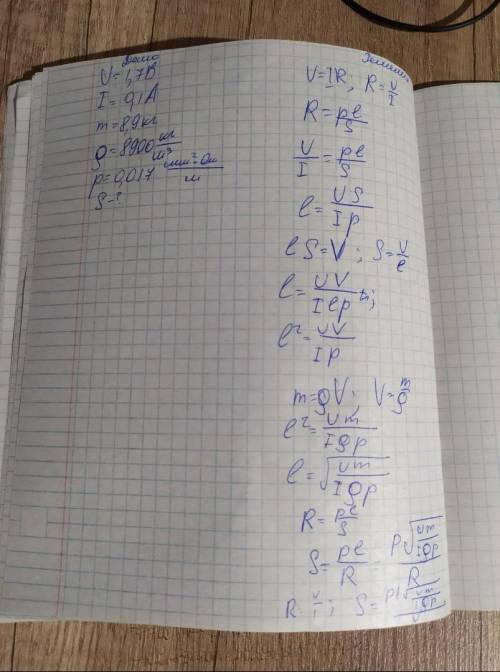 Дано
U=1,7В
I=0,1А
m=8,9кг
ρ=8900 кг/м³
p=0,017 мм²·Ом/м
S=?
Решение
U=IR; R=U/I
R=pl/S
U/I=pl/S
l=US/Ip
lS=V; S=V/l
l=UV/Ilp;
l²=UV/Ip
m=ρV; V=m/ρ
l²=Um/Iρp
l=√(Um/Iρp)
R=pl/S
S=pl/R=p√(Um/Iρp)/R
R=U/I; S=pI√(Um/Iρp)